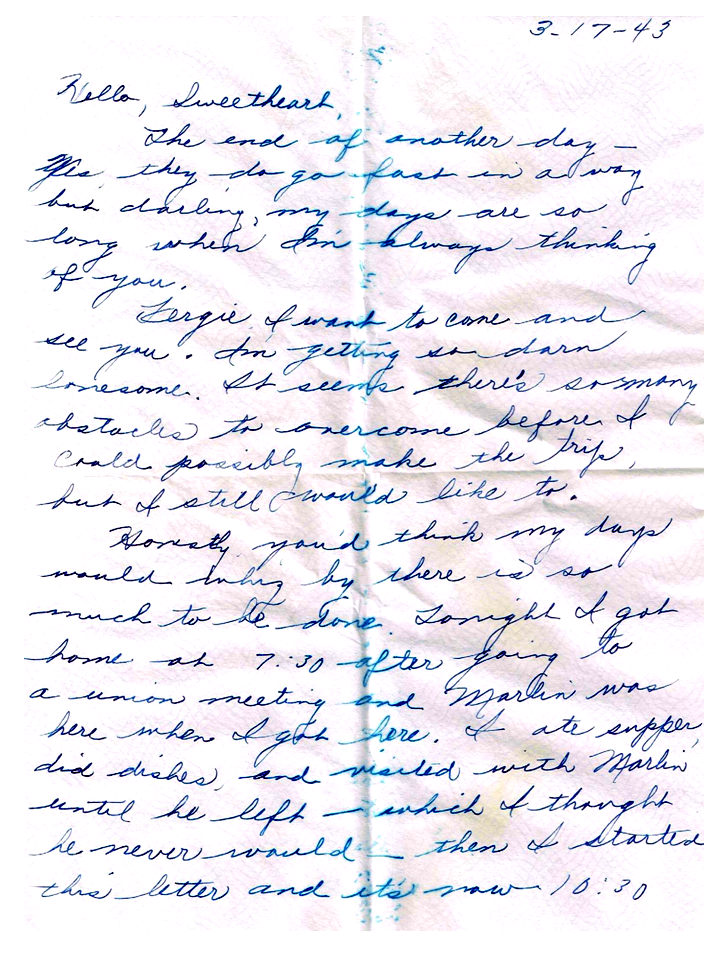 3-17-43
Hello, Sweetheart,
The end of another day —
Yes, they do go fast in a way
but darling, my days are so
long when I'm always thinking
of you.
Fergie, I want to come and
see you. I'm getting so darn
lonesome. It seems there's so many
obstacles to overcome before I
could possibly make the trip,
but I still would like to.
Honestly you'd think my days
would whiz by there is so
much to be done. Tonight I got
home at 7:30 after going to
a union meeting and Marlin was
here when I got here. I ate supper,
did dishes, and visited with Marlin
until he left — which I thought
he never would — then I started
this letter and it's now 10:30